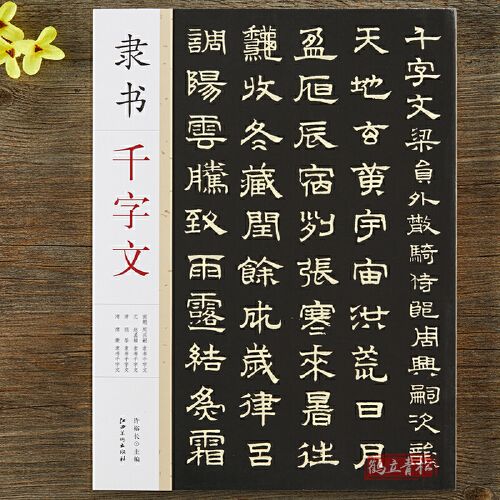 隶书
千字文
许裕长·主编
江西美术出版社
千字文梁員外散騎侍郎周興嗣次韻
天地玄黃宇宙洪荒日月
盈昃辰宿列張寒來暑往
秋收冬藏閏餘成歲律呂
調陽雲騰致雨露結為霜
鶴立青松